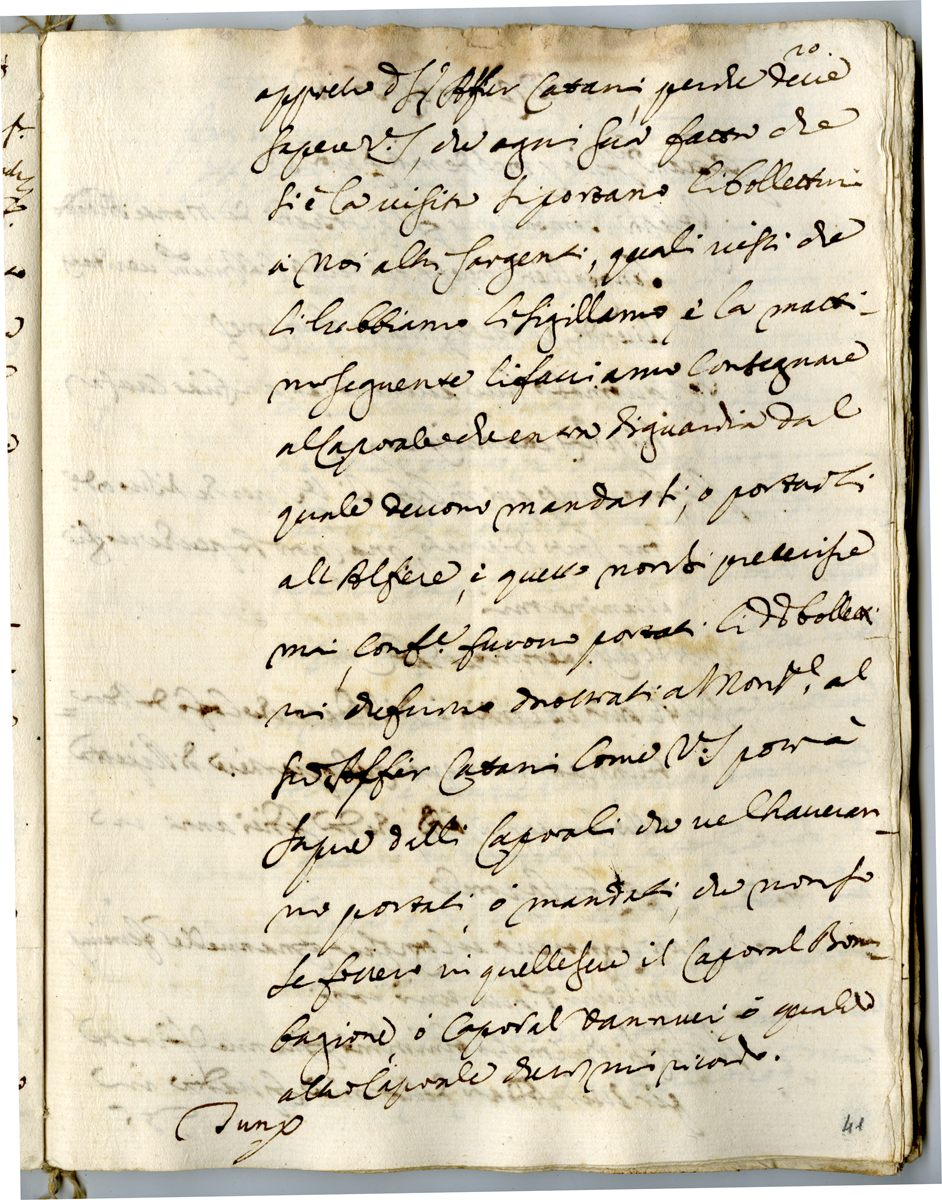 20
appresso d. S.r Alfier Cattani, perche deve
sapere V.S, che ogni sera fatta che
si è la visita si portano li bollettini
a noi altri sargenti, quali visti che
li habbiamo li sigillamo è la matti-
na seguente li facciamo consegnare
al Caporale che entra di guardia dal
quale devono mandarsi, o portarsi
all Alfiere, è questo non si preterisce
mai, Conf.e furono portati li dd bollett-
ni che furno mostrati al al
Sud.o Alfier Cattani come V.S potrà
sapere dalli Caporali che ve l haveran-
no portati, ó mandati, che non so
se fossero in quelle sere il Caporal Bom-
bagione, ó Caporal Vannucci ó qualche
altro Caporale che non mi ricordo.
Tunc
41